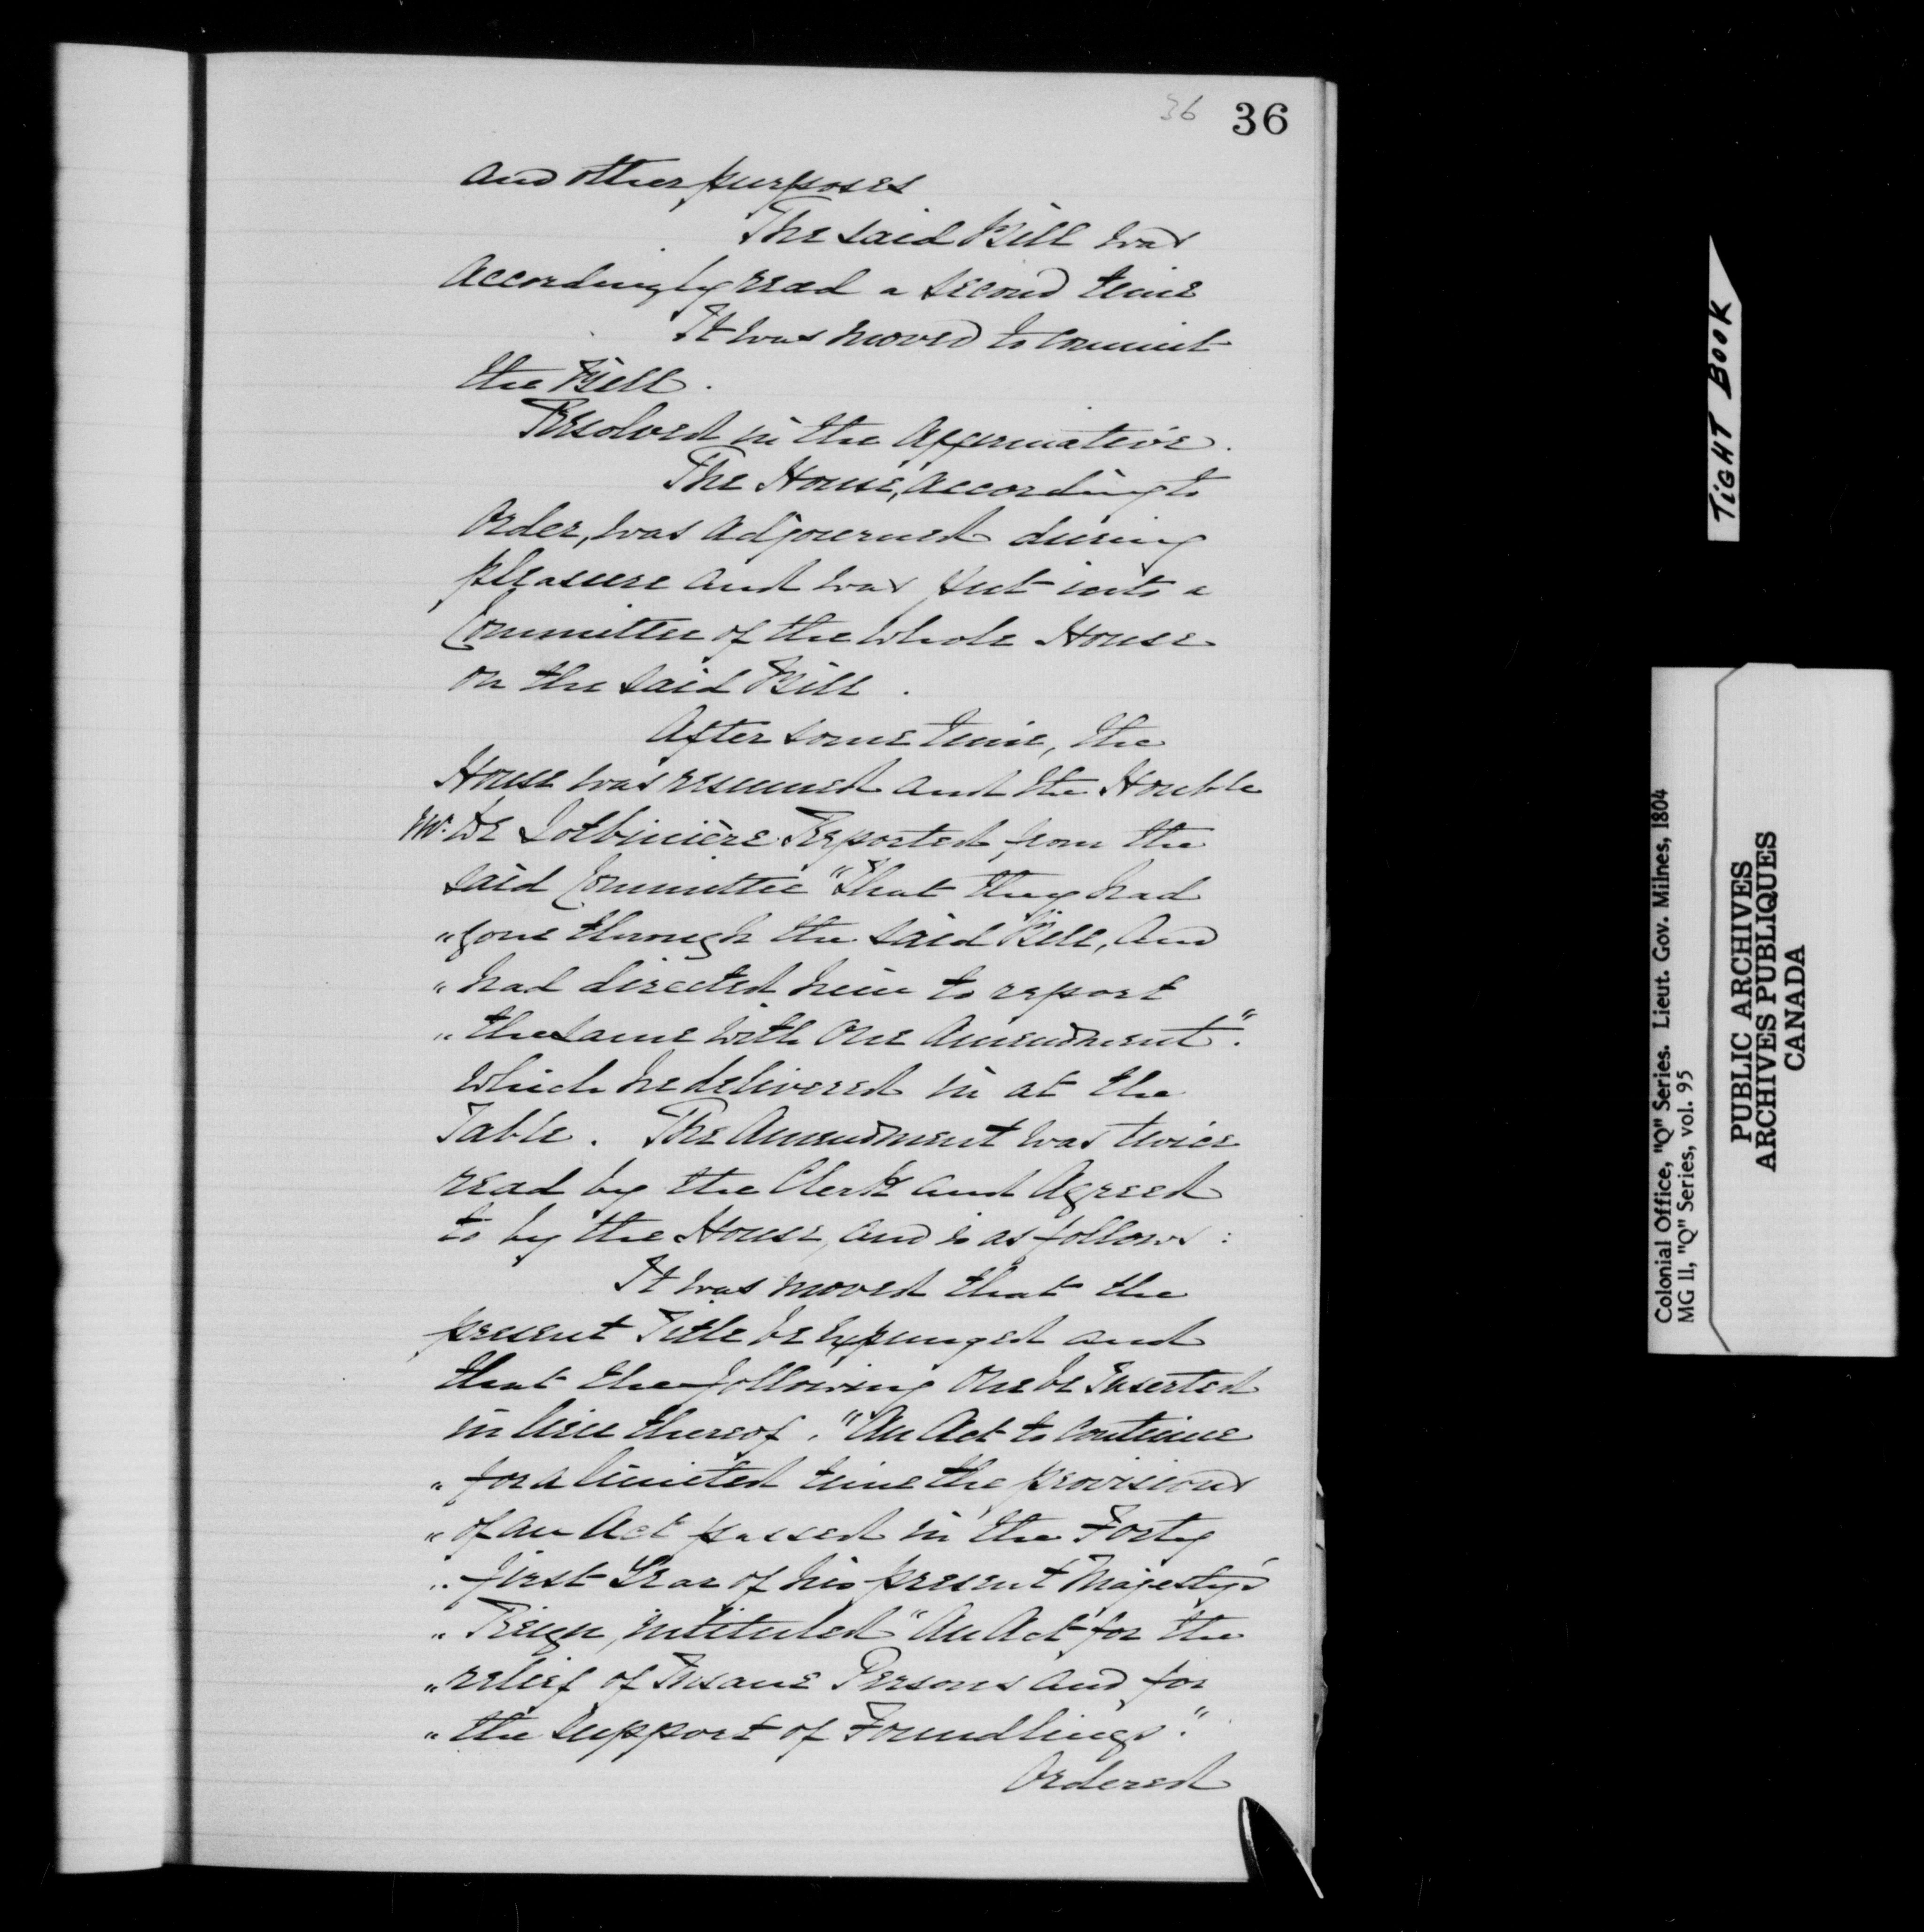 36 36
and other purposes
The said Bill was
accordingly read a second time
It was moved to commit
the Bill.
Resolved in the Affirmative.
The House, according to
Order, was adjourned during
pleasure and was put into a
Committee of the Whole House
on the said Bill.
After some time, the
House was resumed and the Honble
Mr. De Lotbinière Reported from the
said Committee "That they had
" gone through the said Bill, and
" had directed him to report
" the same with One Amendment".
Which he delivered in at the
Table. The Amendment was twice
read by the Clerk and Agreed
to by the House, and is as follows:
It was moved that the
present Title be expunged and
that the following One be Inserted
in lieu thereof. "An Act to Continue
" for a limited time the provisions
" of an Act passed in the Forty
" first Year of his present Majesty's
" Reign, intituled "An Act for the
" relief of Insane Persons and for
" the support of Foundlings."
Ordered
TIGHT BOOK
Colonial Office, "Q" Series. Lieut. Gov. Milnes, 1804
MG 11, "Q" Series, vol. 95
PUBLIC ARCHIVES
ARCHIVES PUBLIQUES
CANADA